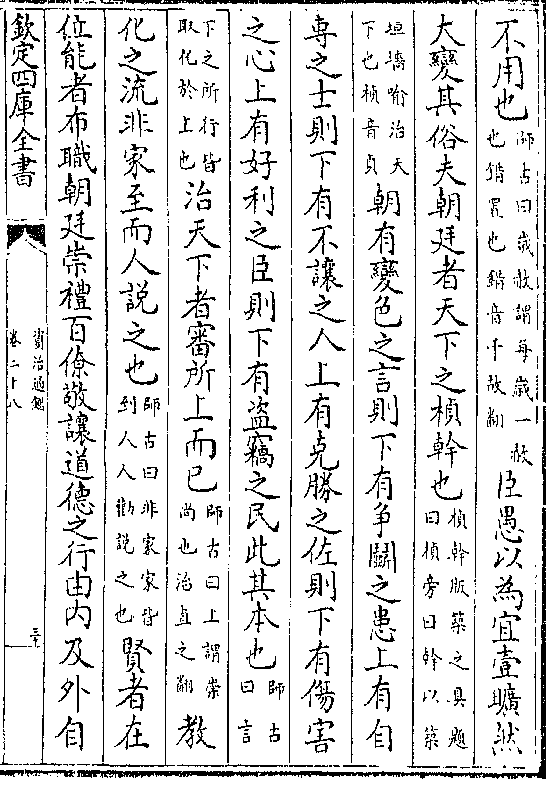 不用也師古曰歲赦謂每歲一赦也錯置也錯音千故翻臣愚以為宜壹曠然
大變其俗夫朝廷者天下之楨幹也楨幹版築之具題曰楨旁曰幹以築
垣墻喻治天下也楨音貞朝有變色之言則下有爭鬭之患上有自
専之士則下有不讓之人上有克勝之佐則下有傷害
之心上有好利之臣則下有盜竊之民此其本也師古曰言
下之所行皆取化於上也治天下者審所上而已師古曰上謂崇尚也治直之翻教
化之流非家至而人說之也師古曰非家家皆到人人勸說之也賢者在
位能者布職朝廷崇禮百僚敬讓道德之行由内及外自
欽定四庫全書
資治通鑑
卷二十八